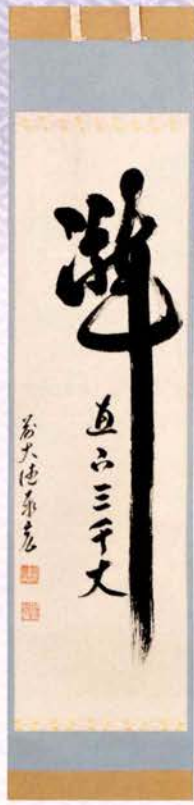 瀧
直下三千丈
前大徳